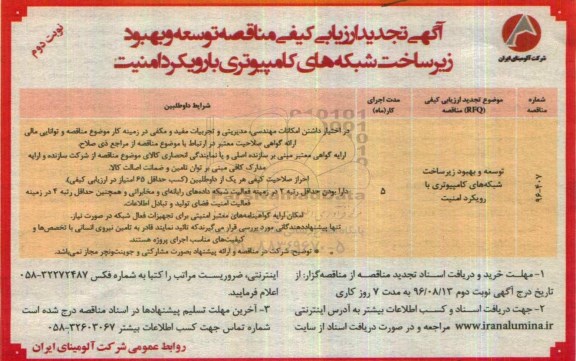 نوبت دوم
آگهی تجدید ارزیابی کیفی مناقصه توسعه و بهبود
زیرساخت شبکه‌های کامپیوتری با رویکرد امنیت
شرکت آلومینای ایران
شماره مناقصه
موضوع تجدید ارزیابی کیفی (RFQ) مناقصه
مدت اجرای کار (ماه)
شرایط داوطلبین
۹۶-۴۰۷
توسعه و بهبود زیرساخت شبکه‌های کامپیوتری با رویکرد امنیت
۵
در اختیار داشتن امکانات مهندسی، مدیریتی و تجربیات مفید و مکفی در زمینه کار موضوع مناقصه و توانایی مالی
ارائه گواهی صلاحیت معتبر در ارتباط با موضوع مناقصه از مراجع ذی صلاح.
ارایه گواهی معتبر مبنی بر سازنده اصلی و یا نمایندگی انحصاری کالای موضوع مناقصه از شرکت سازنده و ارایه
مدارک کافی مبنی بر توان تامین و ضمانت اصالت کالا.
احراز صلاحیت کیفی هر یک از داوطلبین (کسب حداقل ۶۵ امتیاز در ارزیابی کیفی).
دارا بودن حداقل رتبه ۲ در زمینه فعالیت شبکه داده‌های رایانه‌ای و مخابراتی و همچنین حداقل رتبه ۲ در زمینه
فعالیت امنیت فضای تولید و تبادل اطلاعات.
امکان ارایه گواهینامه‌های معتبر امنیتی برای تجهیزات فعال شبکه در صورت نیاز.
تنها پیشنهاددهندگانی مورد بررسی قرار می‌گیرند که تائید نمایند قادر به تامین نیروی انسانی با تخصص‌ها و
کیفیت‌های مناسب اجرای پروژه هستند.
توضیح: شرکت در مناقصه و ارائه پیشنهاد بصورت مشارکتی و جوینت‌ونچر مجاز نمی‌باشد.
۱- مهلت خرید و دریافت اسناد تجدید مناقصه از مناقصه‌گزار: از
تاریخ درج آگهی نوبت دوم ۹۶/۰۸/۱۳ به مدت ۷ روز کاری
۲- جهت دریافت اسناد و کسب اطلاعات بیشتر به آدرس اینترنتی
www.iranalumina.ir مراجعه و در صورت دریافت اسناد از سایت
اینترنتی، ضروریست مراتب را کتبا به شماره فکس ۳۲۲۷۲۴۸۷-۰۵۸
اعلام فرمایید.
۳- آخرین مهلت تسلیم پیشنهادها در اسناد مناقصه درج شده است
شماره تماس جهت کسب اطلاعات بیشتر ۳۲۶۰۳۰۶۷-۰۵۸
روابط عمومی شرکت آلومینای ایران